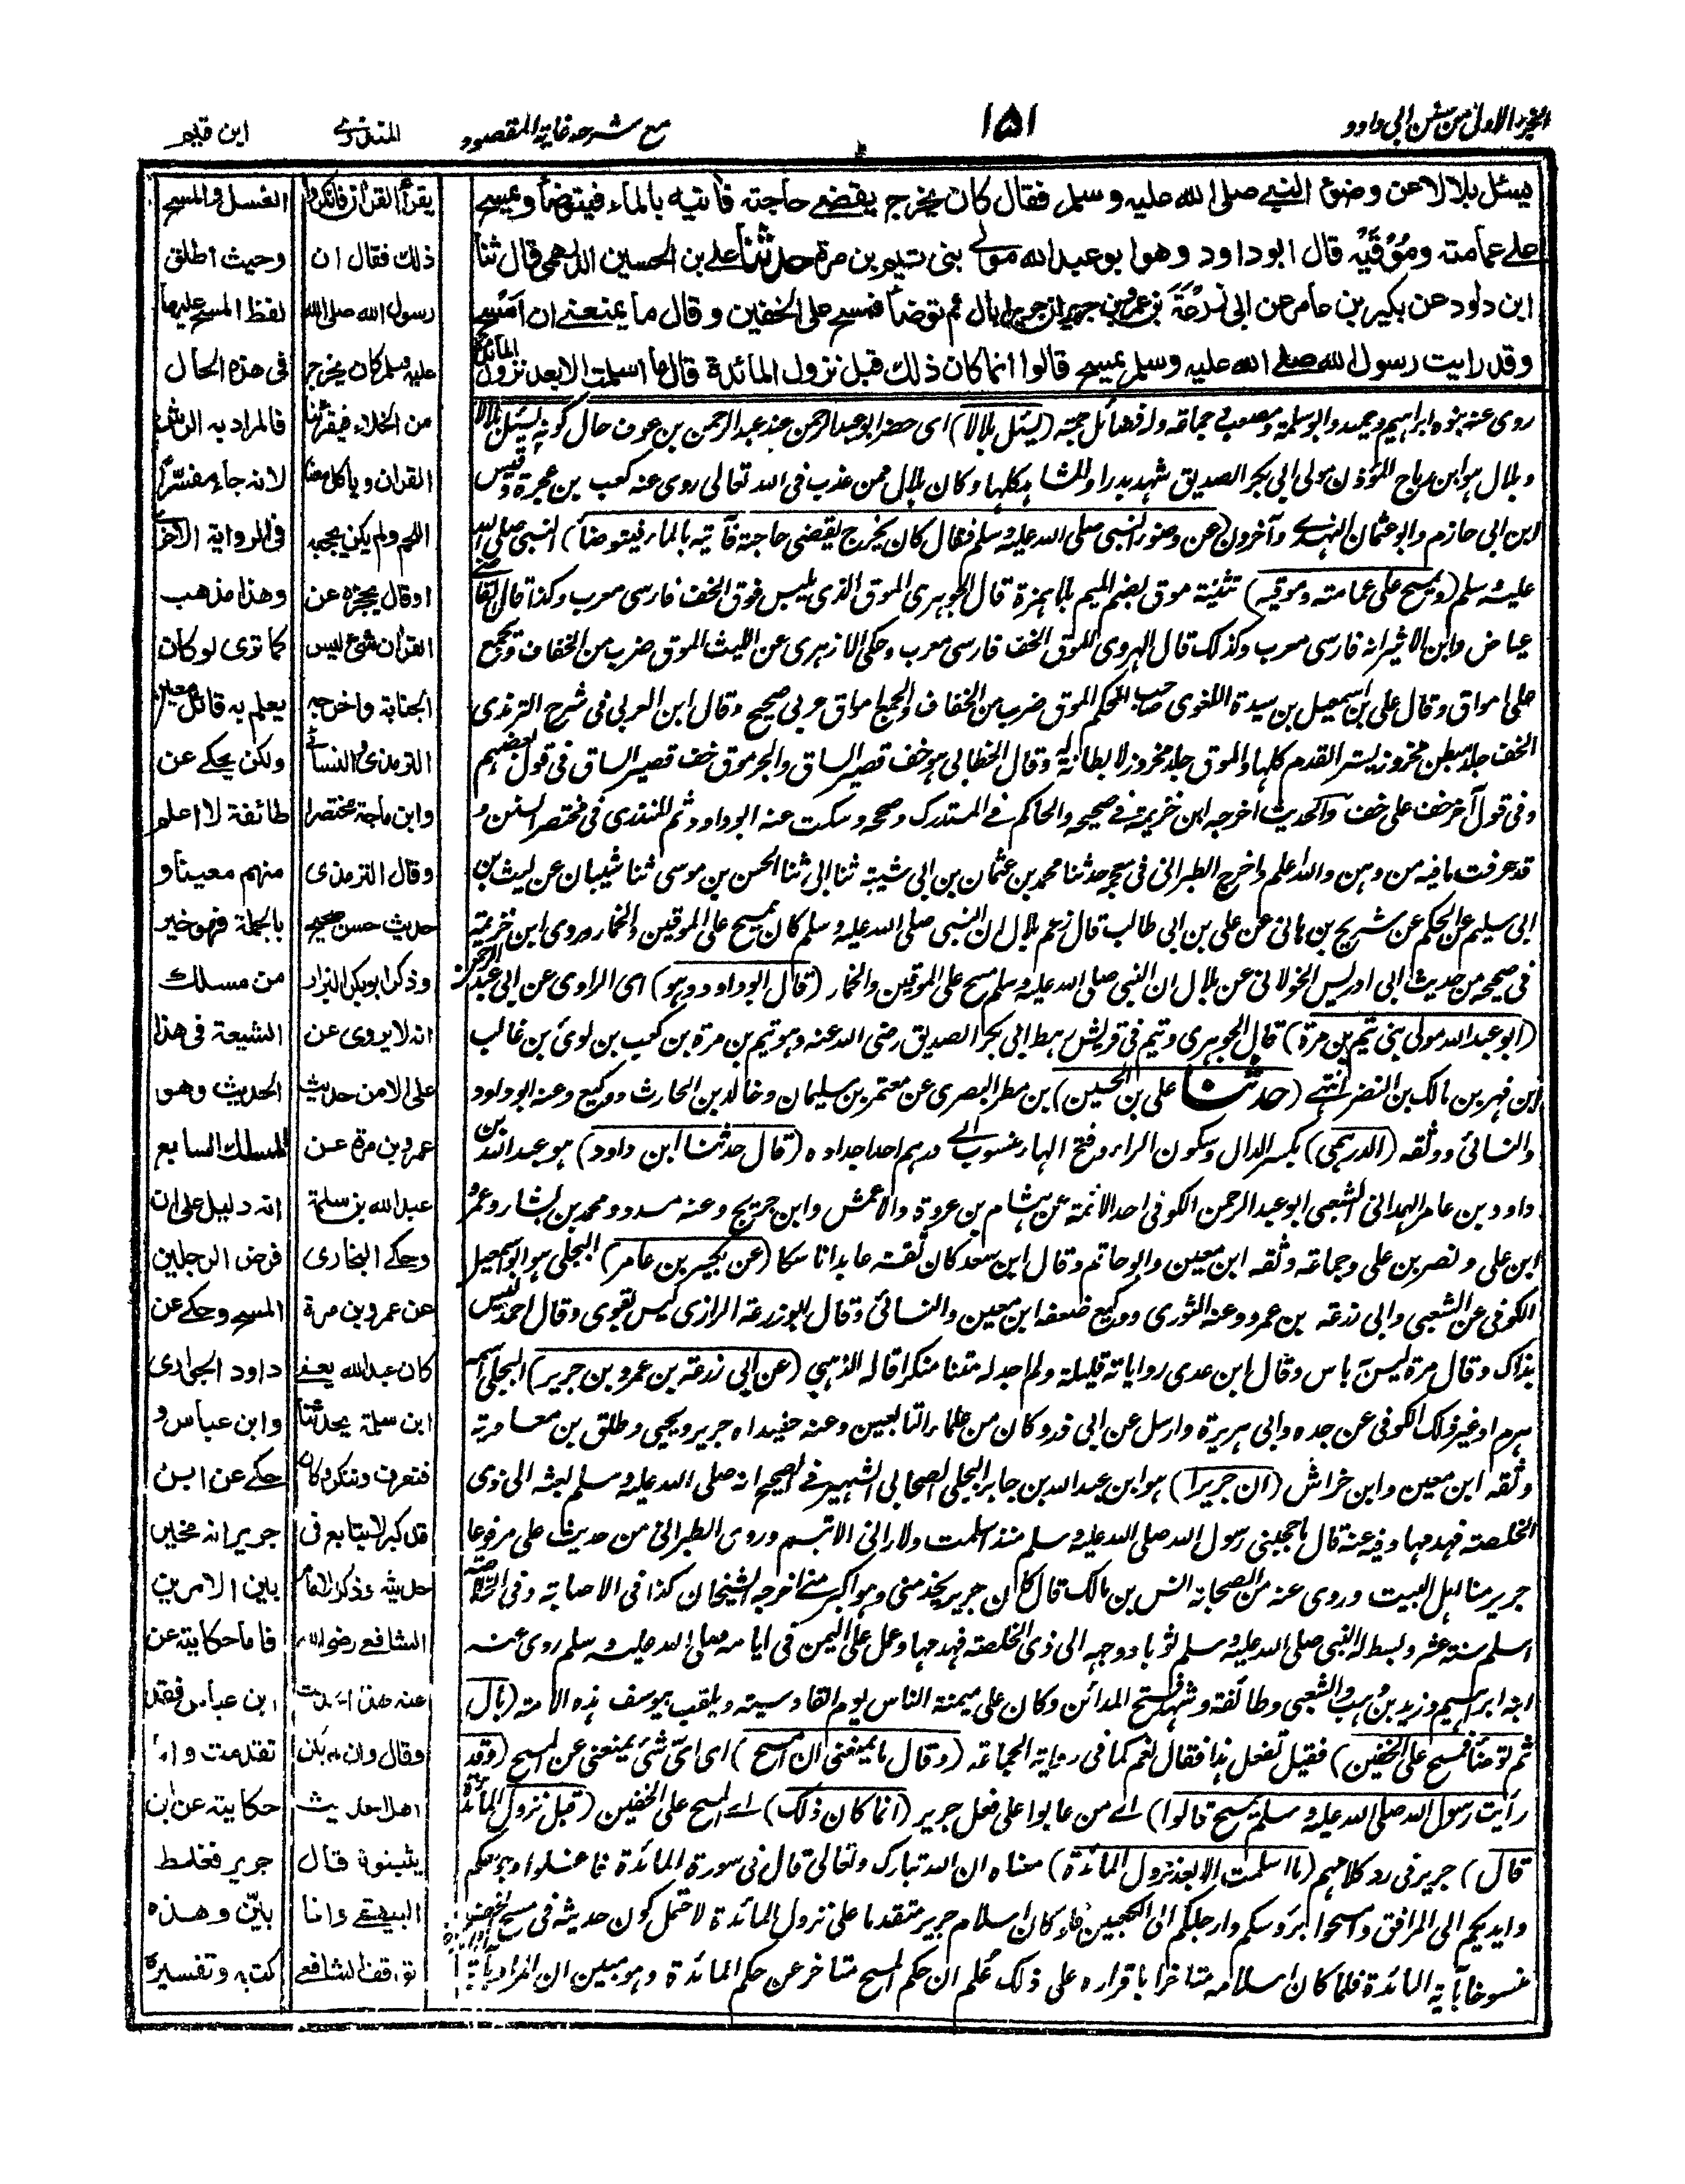 الجزء الاول من سنن ابى داود
١٥١
مع شرحه غاية المقصود
المنذرى
ابن قيم
يسئل بلالا عن وضوء النبي صلى الله عليه وسلم فقال كان يخرج يقضي حاجته فآتيه بالماء فيتوضأ ويمسح
على عمامته ومُوْقَيْه قال ابو داود وهو ابو عبد الله مولى بنى تيم بن مرة حدثنا على بن الحسين الدرهمى قال ثنا
ابن داود عن بكير بن عامر عن ابى زرعة بن عمرو بن جرير ان جريرا بال ثم توضأ فمسح على الخفين وقال ما يمنعنى ان امسح
وقد رايت رسول الله صلى الله عليه وسلم يمسح قالوا انما كان ذلك قبل نزول المائدة قال ما اسلمت الا بعد نزول المائدة
روى عنه بنوه ابراهيم وحميد وابو سلمة ومصعب وجماعة وله فضائل جمة (يسئل بلالا) اى حضر ابو عبد الرحمن عند عبد الرحمن بن عوف حال كونه يسئل بلالا
وبلال هو ابن رباح المؤذن مولى ابى بكر الصديق شهد بدرا والمشاهد كلها وكان بلال ممن عذب فى الله تعالى روى عنه كعب بن عجرة وقيس
ابن ابى حازم وابو عثمان النهدى وآخرون (عن وضوء النبى صلى الله عليه وسلم فقال كان يخرج يقضى حاجته فآتيه بالماء فيتوضأ) النبى صلى الله
عليه وسلم (ويمسح على عمامته وموقيه) تثنية موق بضم الميم بلا همزة قال الجوهرى الموق الذى يلبس فوق الخف فارسى معرب وكذا قال القاضى
عياض وابن الاثير انه فارسى معرب وكذلك قال الهروى الموق الخف فارسى معرب وحكى الازهرى عن الليث الموق ضرب من الخفاف ويجمع
على امواق وقال على بن اسمعيل بن سيدة اللغوى صاحب المحكم الموق ضرب من الخفاف والجمع امواق عربى صحيح وقال ابن العربى فى شرح الترمذى
الخف جلد مبطن مخروز يستر القدم كلها والموق جلد مخروز لا بطانة له وقال الخطابى هو خف قصير الساق والجرموق خف قصير الساق فى قول بعضهم
وفى قول آخر خف على خف والحديث اخرجه ابن خزيمة فى صحيحه والحاكم فى المستدرك وصححه وسكت عنه ابو داود ثم المنذرى فى مختصر السنن و
قد عرفت ما فيه من وهن والله اعلم واخرج الطبرانى فى معجمه حدثنا محمد بن عثمان بن ابى شيبة ثنا ابى ثنا الحسن بن موسى ثنا شيبان عن ليث بن
ابى سليم عن الحكم عن شريح بن هانى عن على بن ابى طالب قال زعم بلال ان النبى صلى الله عليه وسلم كان يمسح على الموقين والخمار وروى ابن خزيمة
فى صحيحه من حديث ابى ادريس الخولانى عن بلال ان النبى صلى الله عليه وسلم مسح على الموقين والخمار (قال ابو داود وهو) اى الراوى عن ابى عبد الرحمن
(ابو عبد الله مولى بنى تيم بن مرة) قال الجوهرى وتيم فى قريش رهط ابى بكر الصديق رضى الله عنه وهو تيم بن مرة بن كعب بن لوئ بن غالب
ابن فهر بن مالك بن النضر انتهى (حدثنا على بن الحسين) بن مطر البصرى عن معتمر بن سليمان وخالد بن الحارث ووكيع وعنه ابو داود
والنسائى ووثقه (الدرهمى) بكسر الدال وسكون الراء وفتح الهاء منسوب الى درهم احد اجداده (قال حدثنا ابن داود) هو عبد الله بن
داود بن عامر الهمدانى الشعبى ابو عبد الرحمن الكوفى احد الائمة عن هشام بن عروة والاعمش وابن جريج وعنه مسدد ومحمد بن بشار وعمرو
ابن على ونصر بن على وجماعة وثقه ابن معين وابو حاتم وقال ابن سعد كان ثقة عابدا ناسكا (عن بكير بن عامر) البجلى هو ابو اسمعيل
الكوفى عن الشعبى وابى زرعة بن عمرو وعنه الثورى ووكيع ضعفه ابن معين والنسائى وقال ابو زرعة الرازى ليس بقوى وقال احمد ليس
بذاك وقال مرة ليس به باس وقال ابن عدى رواياته قليلة ولم اجد له متنا منكرا قاله الذهبى (عن ابى زرعة بن عمرو بن جرير) البجلى اسمه
هرم او غير ذلك الكوفى عن جده وابى هريرة وارسل عن ابى ذر وكان من علماء التابعين وعنه حفيداه جرير ويحيى وطلق بن معاوية
وثقه ابن معين وابن خراش (ان جريرا) هو ابن عبد الله بن جابر البجلى الصحابى الشهير فى الصحيح انه صلى الله عليه وسلم بعثه الى ذى
الخلصة فهدمها وفيه عنه قال ما حجبنى رسول الله صلى الله عليه وسلم منذ اسلمت ولا رانى الا تبسم وروى الطبرانى من حديث على مرفوعا
جرير منا اهل البيت وروى عنه من الصحابة انس بن مالك قال كان جرير يخدمنى وهو اكبر منى اخرجه الشيخان كذا فى الاصابة وفى الخلاصة
اسلم سنة عشر وبسط له النبى صلى الله عليه وسلم ثوبا ووجهه الى ذى الخلصة فهدمها وعمل على اليمن فى ايامه صلى الله عليه وسلم روى عنه
ابنه ابراهيم وزيد بن وهب والشعبى وطائفة وشهد فتح المدائن وكان على ميمنة الناس يوم القادسية ويلقب بيوسف هذه الامة (بال
ثم توضأ فمسح على الخفين) فقيل تفعل هذا فقال نعم كما فى رواية الجماعة (وقال ما يمنعنى ان امسح) اى اىّ شئ يمنعنى عن المسح (وقد
رأيت رسول الله صلى الله عليه وسلم يمسح قالوا) اى من عابوا على فعل جرير (انما كان ذلك) اى المسح على الخفين (قبل نزول المائدة
قال) جرير فى رد كلامهم (ما اسلمت الا بعد نزول المائدة) معناه ان الله تبارك وتعالى قال فى سورة المائدة فاغسلوا وجوهكم
وايديكم الى المرافق وامسحوا برؤسكم وارجلكم الى الكعبين فلو كان اسلام جرير متقدما على نزول المائدة لاحتمل كون حديثه فى مسح الخف
منسوخا بآية المائدة فلما كان اسلامه متاخرا باقراره على ذلك عُلم ان حكم المسح متاخر عن حكم المائدة وهو مبين ان المراد بآية
يقرأ القران فانكروا
ذلك فقال ان
رسول الله صلى الله
عليه وسلم كان يخرج
من الخلاء فيقرئنا
القران وياكل معنا
اللحم ولم يكن يحجبه
او قال يحجزه عن
القران شئ ليس
الجنابة واخرجه
الترمذى والنسائى
وابن ماجة مختصرا
وقال الترمذى
حديث حسن صحيح
وذكر ابو بكر البزار
انه لا يروى عن
على الا من حديث
عمرو بن مرة عن
عبد الله بن سلمة
وحكى البخارى
عن عمرو بن مرة
كان عبد الله يعنى
ابن سلمة يحدثنا
فتعرف وتنكر وكان
قد كبر لا يتابع فى
حديثه وذكر الامام
الشافعى رضى الله
عنه هذا الحديث
وقال وان لم يكن
اهل الحديث
يثبتونه قال
البيهقى وانما
توقف الشافعى
الغسل والمسح
وحيث اطلق
لفظ المسح عليها
فى هذه الحال
فالمراد به الرش
لانه جاء مفسّرا
فى الرواية الاخرى
وهذا مذهب
كما ترى لو كان
يعلم به قائل معين
ولكن يحكى عن
طائفة لا اعلم
منهم معينا و
بالجملة فهو خير
من مسلك
الشيعة فى هذا
الحديث وهو
المسلك السابع
انه دليل على ان
فرض الرجلين
المسح وحكى عن
داود الجوارى
وابن عباس و
حكى عن ابن
جرير انه مخير
بين الامرين
فاما حكايته عن
ابن عباس فقد
تقدمت واما
حكايته عن ابن
جرير فغلط
بيّن وهذه
كتبه وتفسيره